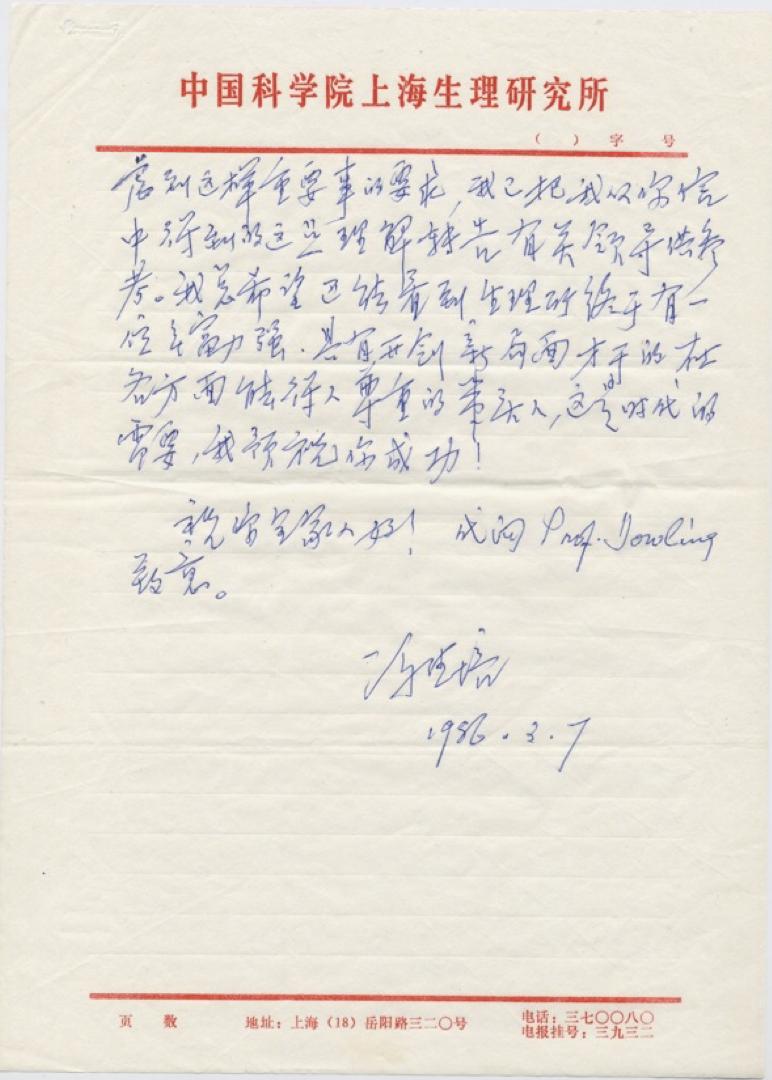 中国科学院上海生理研究所
（ ） 字 号
虑到这样重要事的要求，我已把我从你信
中得到的这些理解转告有关领导供参
考。我总希望还能看到生理所终于有一
位年富力强、具有开创新局面才干的在
各方面能得人尊重的带头人，这是时代的
需要，我预祝你成功！
祝你全家人好！ 代问 Prof. Dowling
致意。
冯德培
1986.3.7
页 数 地址：上海（18）岳阳路三二〇号 电话：三七〇〇八〇
电报挂号：三九三二